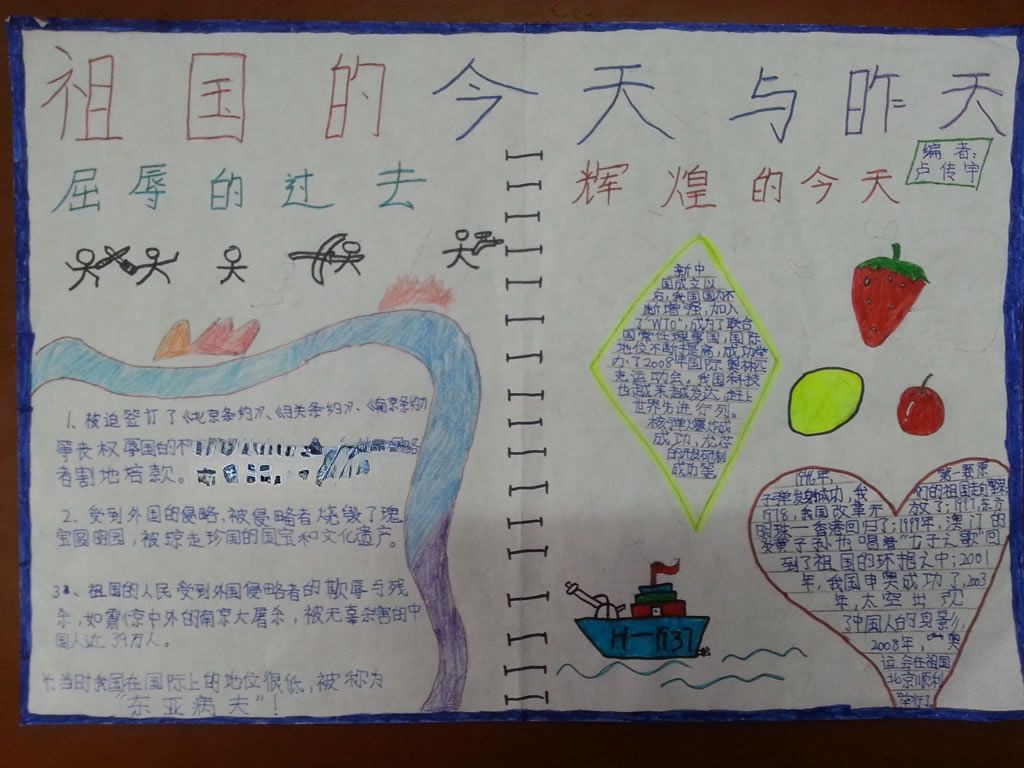 祖国的今天与昨天
编者:
卢传宇
屈辱的过去
辉煌的今天
1、被迫签订了《北京条约》、《马关条约》、《南京条约》
等丧权辱国的不
者割地赔款。
2、受到外国的侵略,被侵略者烧毁了瑰
宝圆明园,被掠走珍国的国宝和文化遗产。
3、祖国的人民受到外国侵略者的欺辱与残
杀,如震惊中外的南京大屠杀,被无辜杀害的中
国人近39万人。
4.当时我国在国际上的地位很低,被称为
“东亚病夫”!
新中
国成立以
后,我国国力不
断增强,加入
了“WTO”,成为了联合
国常任理事国,国际
地位不断提高,成功举
办了2008年国际奥林匹
克运动会,我国科技
也越来越发达,赶上
世界先进行列。
核弹爆炸
成功,
的研制
成功等
年, 第一颗原
子弹发射成功,我们的祖国
1978,我国改革开放了;1997,东方
明珠——香港回归了;1999年,澳门的
炎黄子孙也唱着“七子之歌”回
到了祖国的环抱之中;2001
年,我国申奥成功了,2003
年,太空出现
了中国人的身影,
2008年,奥
运会在祖国
北京顺利
举行了
H-1937